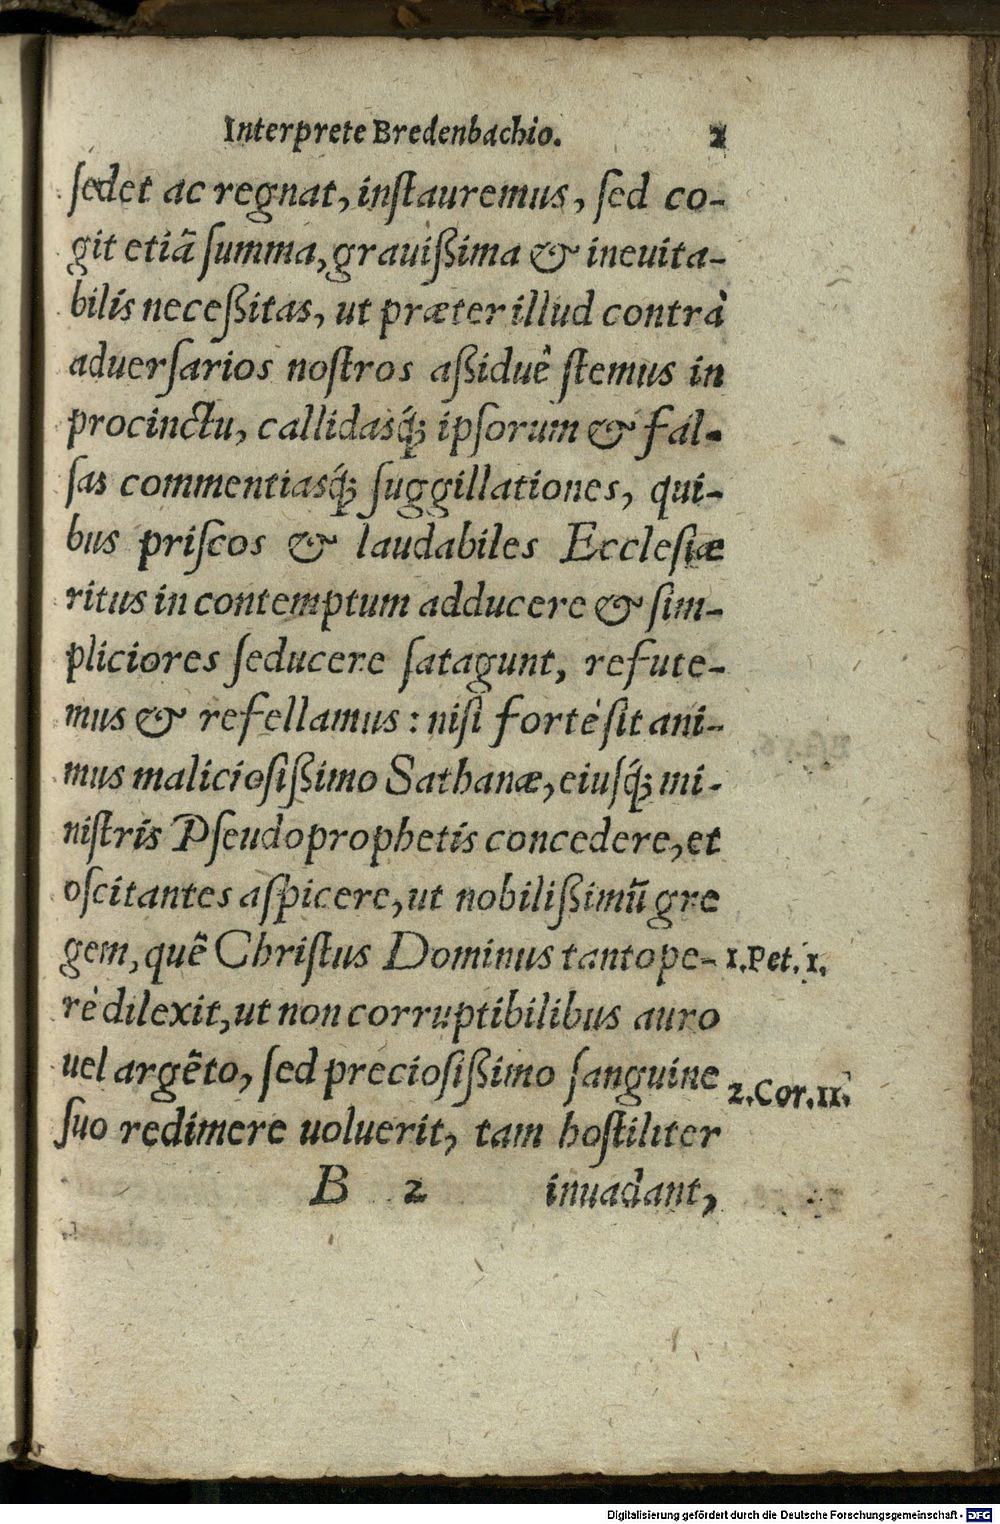 Interprete Bredenbachio. 2
ſedet ac regnat, inſtauremus, ſed co-
git etiã ſumma, grauißima & ineuita-
bilis neceßitas, ut præter illud contrà
aduerſarios noſtros aßiduè ſtemus in
procinctu, callidasq́; ipſorum & fal-
ſas commentiasq́; ſuggillationes, qui-
bus priſcos & laudabiles Eccleſiæ
ritus in contemptum adducere & ſim-
pliciores ſeducere ſatagunt, refute-
mus & refellamus: niſi fortè ſit ani-
mus malicioſißimo Sathanæ, eiuſq́; mi-
niſtris Pſeudoprophetis concedere, et
oſcitantes aſpicere, ut nobilißimũ gre
gem, quẽ Chriſtus Dominus tantope- 1.Pet.1.
rè dilexit, ut non corruptibilibus auro
uel argẽto, ſed precioſißimo ſanguine
2.Cor.11.
ſuo redimere uoluerit, tam hoſtiliter
B 2 inuadant,
Digitalisierung gefördert durch die Deutsche Forschungsgemeinschaft - DFG